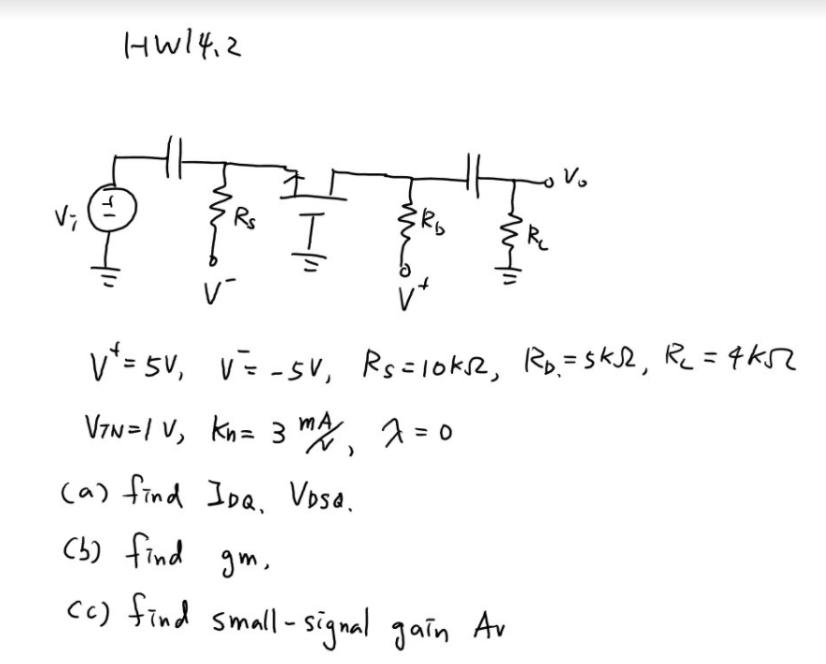 HW14.2
Vi + - Rs Rb RL Vo
V- V+
V+ = 5V, V- = -5V, Rs = 10kΩ, RD. = 5kΩ, RL = 4kΩ
VTN = 1 V, Kn = 3 mA/V, λ = 0
(a) find IDQ, VDSQ.
(b) find gm.
(c) find small-signal gain Av